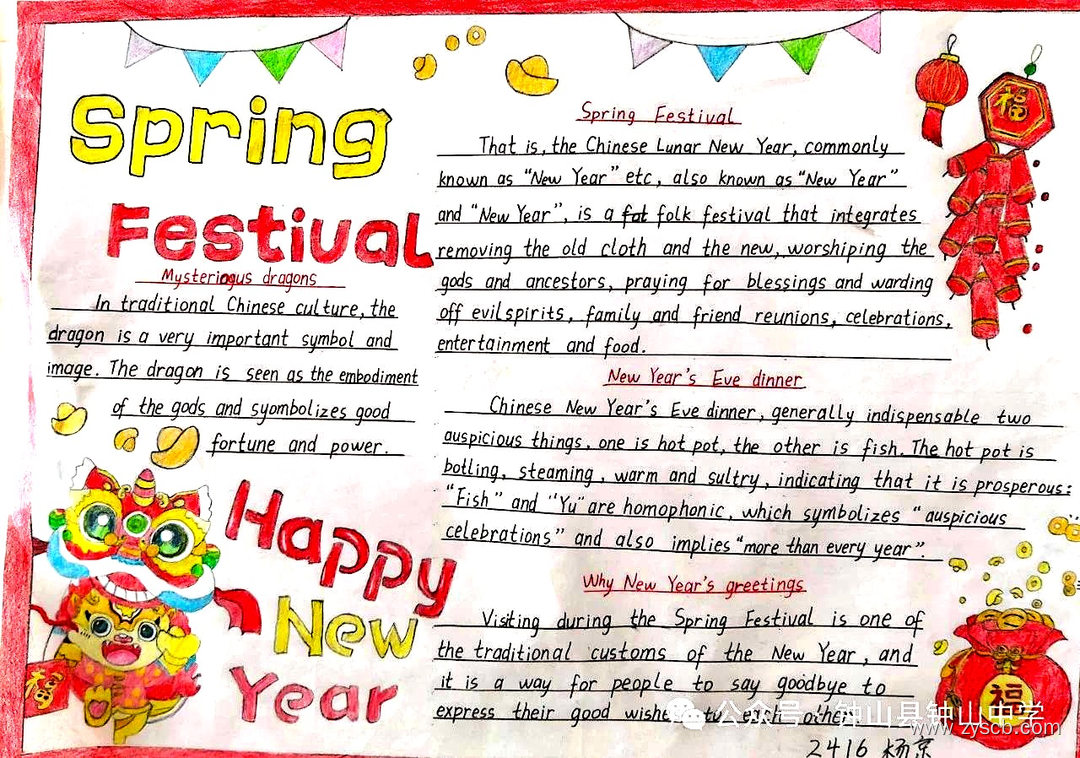 Spring
Festival
Mysteriogus dragons
In traditional Chinese culture, the
dragon is a very important symbol and
image. The dragon is seen as the embodiment
of the gods and syombolizes good
fortune and power.
Happy
New
Year
福
Spring Festival
That is, the Chinese Lunar New Year, commonly
known as "New Year" etc, also known as "New Year"
and "New Year", is a fat folk festival that integrates
removing the old cloth and the new, worshiping the
gods and ancestors, praying for blessings and warding
off evilspirits, family and friend reunions, celebrations,
entertainment and food.
New Year's Eve dinner
Chinese New Year's Eve dinner, generally indispensable two
auspicious things, one is hot pot, the other is fish. The hot pot is
botling, steaming, warm and sultry, indicating that it is prosperous:
"Fish" and "Yu" are homophonic, which symbolizes "auspicious
celebrations" and also implies "more than every year".
Why New Year's greetings
Visiting during the Spring Festival is one of
the traditional customs of the New Year, and
it is a way for people to say goodbye to
express their good wishes to each other
福
福
公众号·钟山县钟山中学
www.zyscb.com
2416 杨